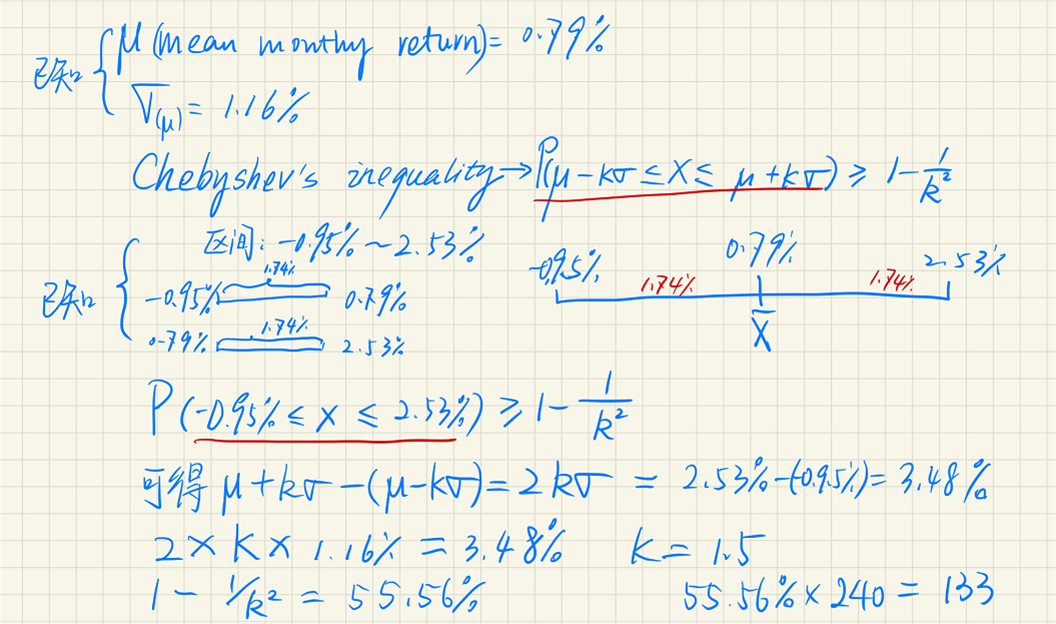 已知 { μ (mean monthy return) = 0.79%
σ(μ) = 1.16%
Chebyshev's inequality → P(μ - kσ ≤ X ≤ μ + kσ) ≥ 1 - 1/k²
区间: -0.95% ~ 2.53%
已知 { -0.95% 1.74% 0.79%
0.79% 1.74% 2.53%
-0.95% 1.74% 0.79% 1.74% 2.53%
X̄
P(-0.95% ≤ X ≤ 2.53%) ≥ 1 - 1/k²
可得 μ + kσ - (μ - kσ) = 2kσ = 2.53% - (-0.95%) = 3.48%
2 × k × 1.16% = 3.48% k = 1.5
1 - 1/k² = 55.56% 55.56% × 240 = 133